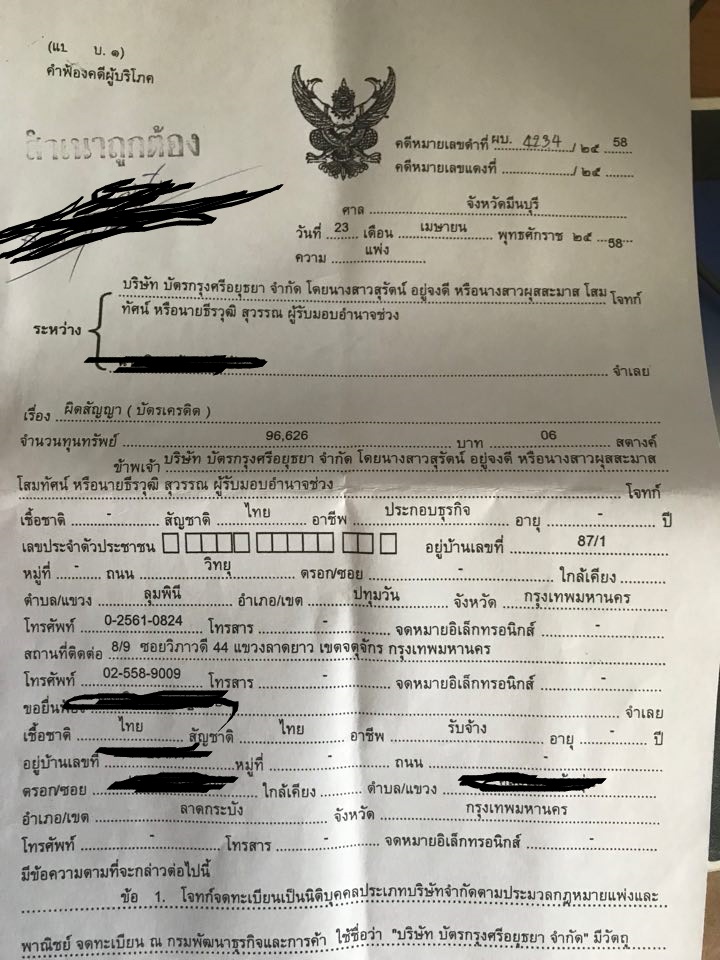 (แบ บ. ๑)
คำฟ้องคดีผู้บริโภค
สำเนาถูกต้อง
คดีหมายเลขดำที่ ผบ. 4234 / ๒๕ 58
คดีหมายเลขแดงที่ / ๒๕
ศาล จังหวัดมีนบุรี
วันที่ 23 เดือน เมษายน พุทธศักราช ๒๕ 58
ความ แพ่ง
บริษัท บัตรกรุงศรีอยุธยา จำกัด โดยนางสาวสุรัตน์ อยู่จงดี หรือนางสาวผุสสะมาส โสม โจทก์
ระหว่าง ทัศน์ หรือนายธีรวุฒิ สุวรรณ ผู้รับมอบอำนาจช่วง
จำเลย
เรื่อง ผิดสัญญา ( บัตรเครดิต )
จำนวนทุนทรัพย์ 96,626 บาท 06 สตางค์
ข้าพเจ้า บริษัท บัตรกรุงศรีอยุธยา จำกัด โดยนางสาวสุรัตน์ อยู่จงดี หรือนางสาวผุสสะมาส
โสมทัศน์ หรือนายธีรวุฒิ สุวรรณ ผู้รับมอบอำนาจช่วง โจทก์
เชื้อชาติ - สัญชาติ ไทย อาชีพ ประกอบธุรกิจ อายุ - ปี
เลขประจำตัวประชาชน อยู่บ้านเลขที่ 87/1
หมู่ที่ - ถนน วิทยุ ตรอก/ซอย - ใกล้เคียง
ตำบล/แขวง ลุมพินี อำเภอ/เขต ปทุมวัน จังหวัด กรุงเทพมหานคร
โทรศัพท์ 0-2561-0824 โทรสาร - จดหมายอิเล็กทรอนิกส์ -
สถานที่ติดต่อ 8/9 ซอยวิภาวดี 44 แขวงลาดยาว เขตจตุจักร กรุงเทพมหานคร
โทรศัพท์ 02-558-9009 โทรสาร - จดหมายอิเล็กทรอนิกส์ -
ขอยื่นฟ้อง จำเลย
เชื้อชาติ ไทย สัญชาติ ไทย อาชีพ รับจ้าง อายุ - ปี
อยู่บ้านเลขที่ หมู่ที่ - ถนน -
ตรอก/ซอย ใกล้เคียง ตำบล/แขวง
อำเภอ/เขต ลาดกระบัง จังหวัด กรุงเทพมหานคร
โทรศัพท์ - โทรสาร - จดหมายอิเล็กทรอนิกส์ -
มีข้อความตามที่จะกล่าวต่อไปนี้
ข้อ 1. โจทก์จดทะเบียนเป็นนิติบุคคลประเภทบริษัทจำกัดตามประมวลกฎหมายแพ่งและ
พาณิชย์ จดทะเบียน ณ กรมพัฒนาธุรกิจและการค้า ใช้ชื่อว่า "บริษัท บัตรกรุงศรีอยุธยา จำกัด" มีวัตถุ